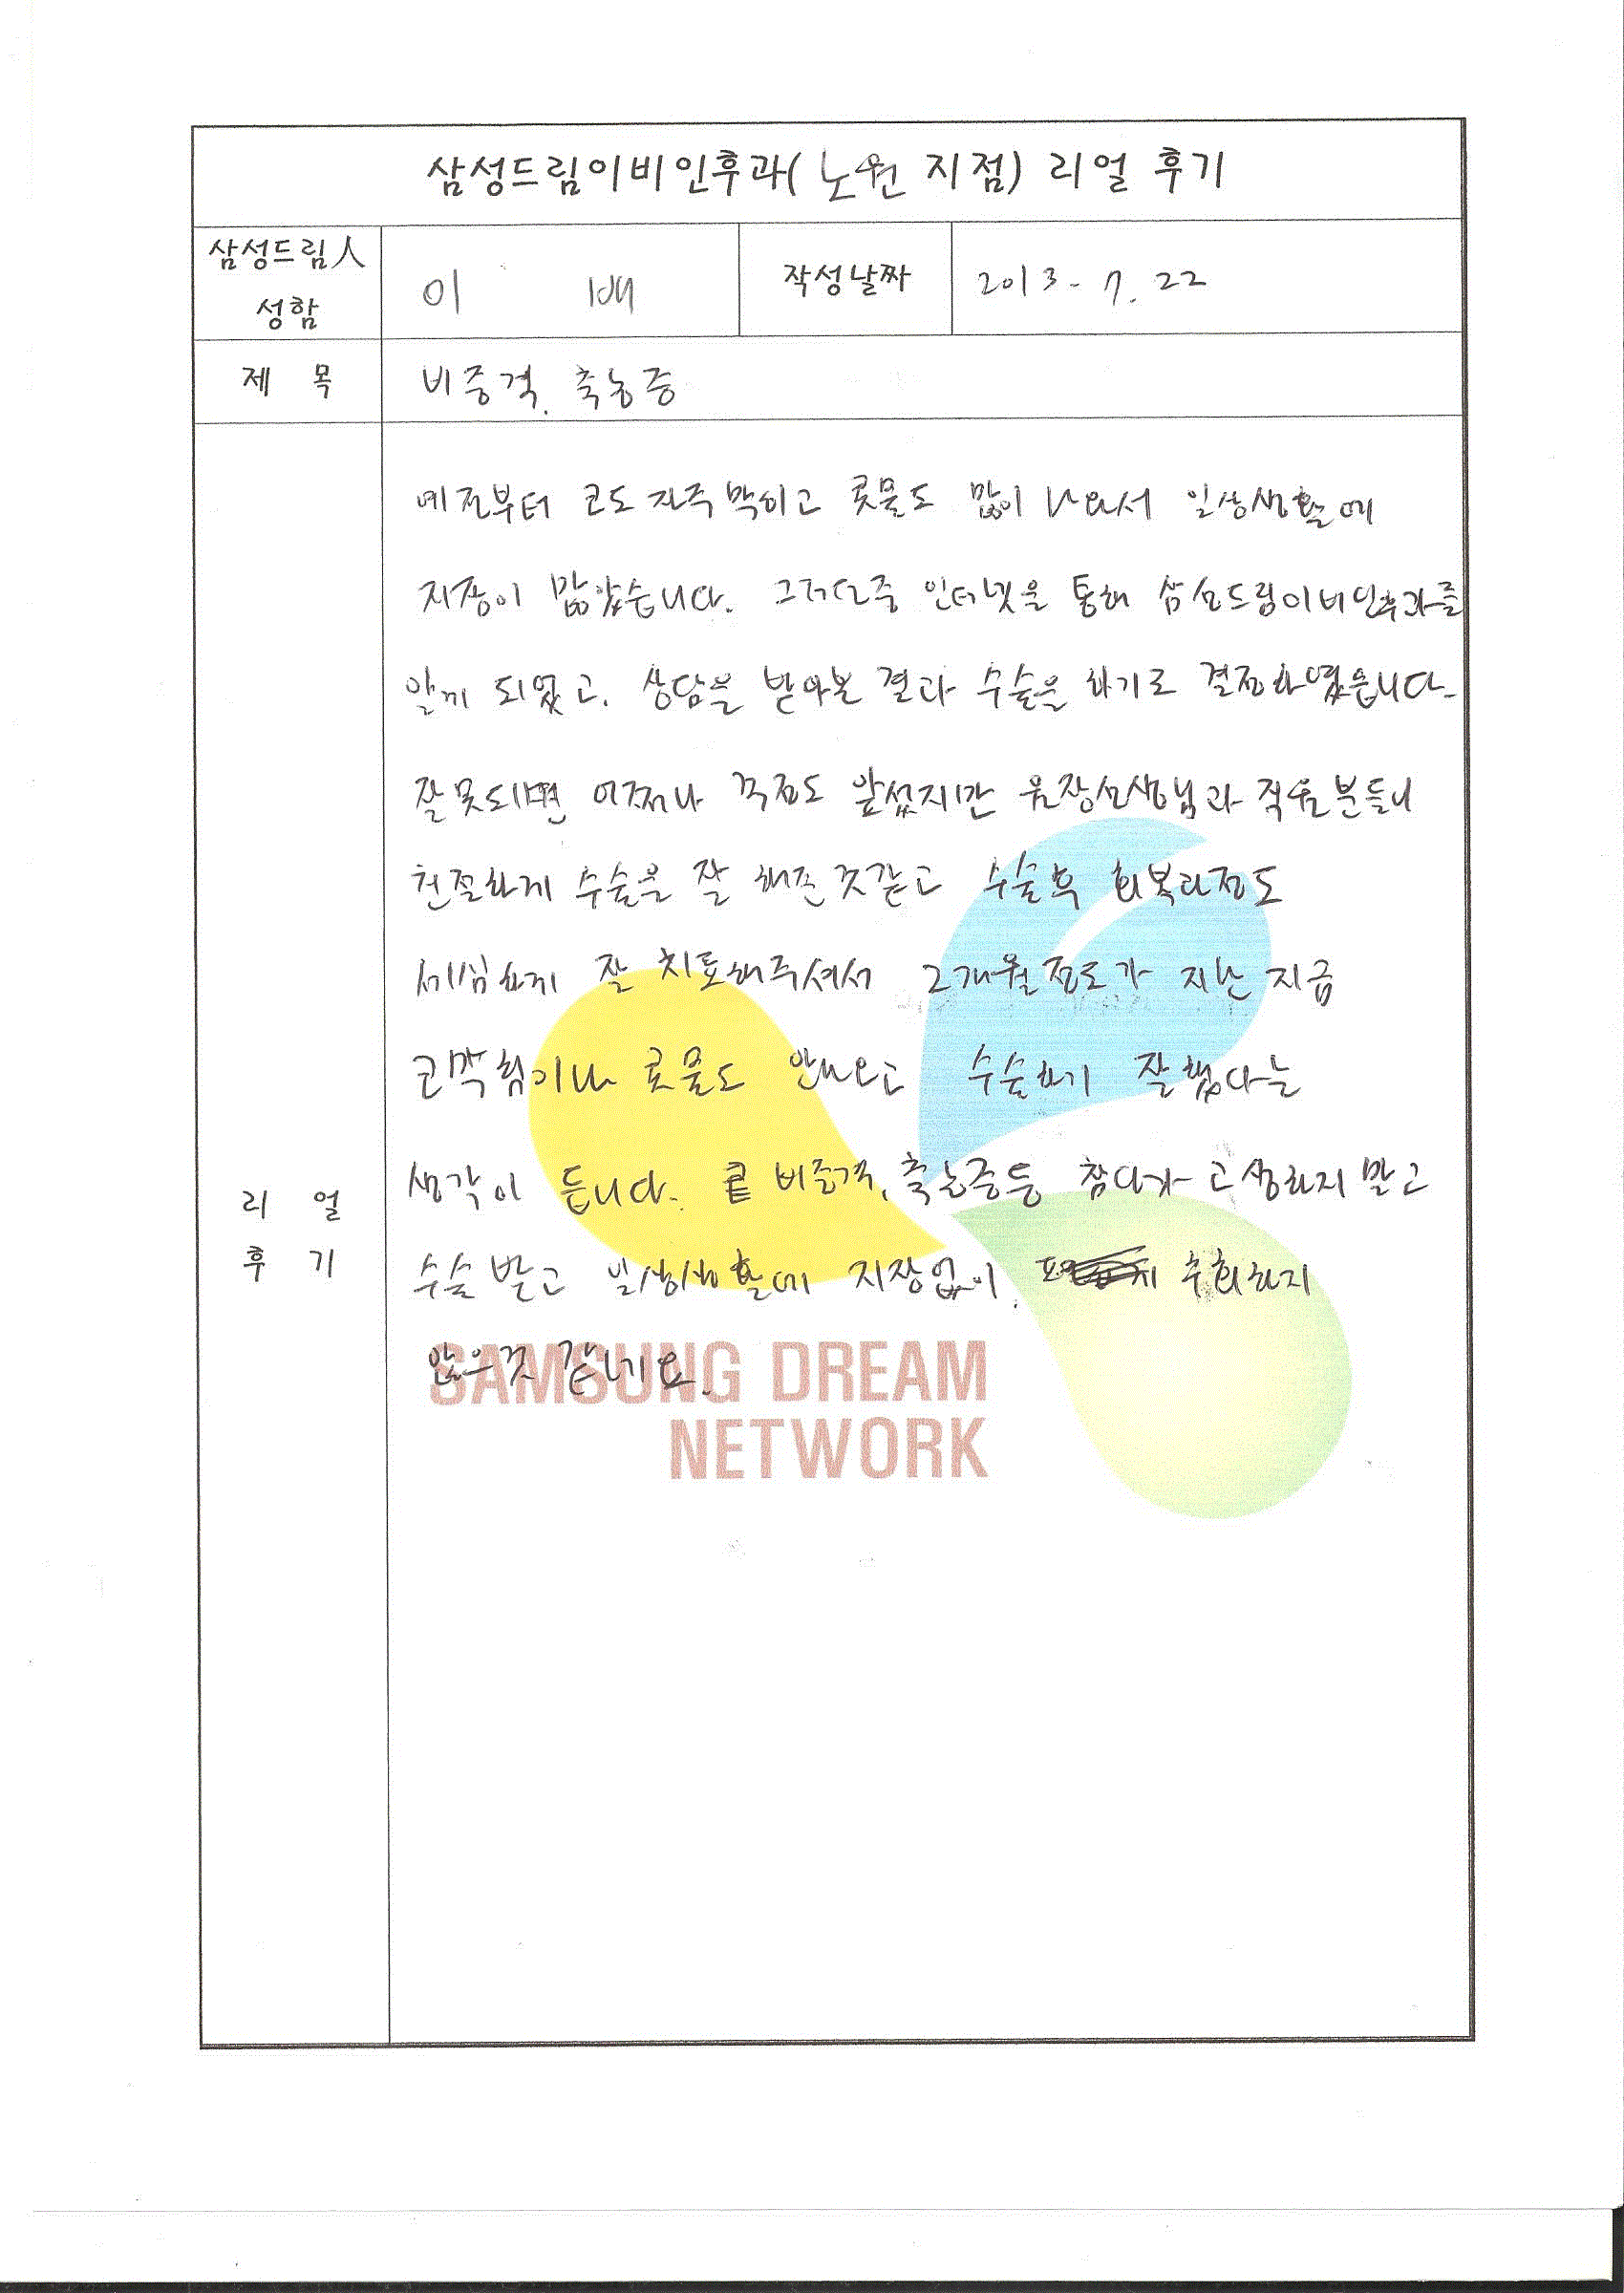 삼성드림이비인후과(노원 지점) 리얼 후기
삼성드림人
성함
이
작성날짜
2013-7.22
제 목
비중격. 축농증
예전부터 코도 자주 막히고 콧물도 많이 나와서 일상생활에
지장이 많았습니다. 그러던중 인터넷을 통해 삼성드림이비인후과를
알게 되었고. 상담을 받아본 결과 수술을 하기로 결정하였습니다.
잘못되면 어쩌나 걱정도 앞섰지만 원장선생님과 직원분들이
친절하게 수술을 잘 해준것같고 수술후 회복과정도
세심하게 잘 치료해주셔서 2개월정도가 지난 지금
코막힘이나 콧물도 안나오고 수술하기 잘했다는
생각이 듭니다. 비중격, 축농증등 참다가 고생하지 말고
수술 받고 일상생활에 지장없이. 후회하지
않은것 같네요.
리 얼
후 기
SAMSUNG DREAM
NETWORK